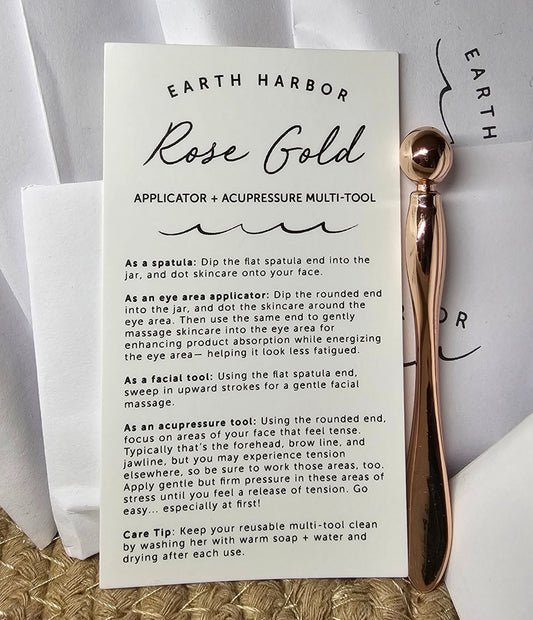 EARTH HARBOR
Rose Gold
APPLICATOR + ACUPRESSURE MULTI-TOOL
As a spatula: Dip the flat spatula end into the
jar, and dot skincare onto your face.
As an eye area applicator: Dip the rounded end
into the jar, and dot the skincare around the
eye area. Then use the same end to gently
massage skincare into the eye area for
enhancing product absorption while energizing
the eye area— helping it look less fatigued.
As a facial tool: Using the flat spatula end,
sweep in upward strokes for a gentle facial
massage.
As an acupressure tool: Using the rounded end,
focus on areas of your face that feel tense.
Typically that's the forehead, brow line, and
jawline, but you may experience tension
elsewhere, so be sure to work those areas, too.
Apply gentle but firm pressure in these areas of
stress until you feel a release of tension. Go
easy... especially at first!
Care Tip: Keep your reusable multi-tool clean
by washing her with warm soap + water and
drying after each use.
EARTH
OR